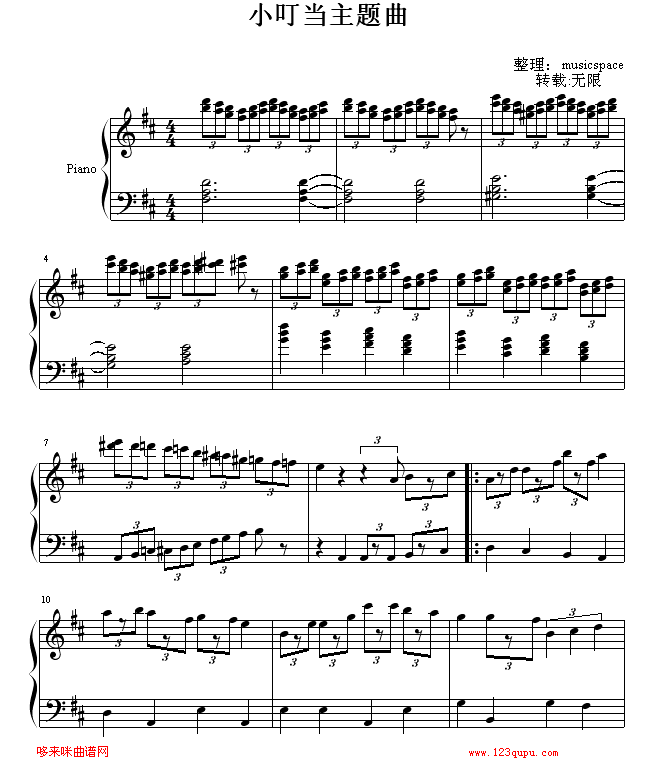 小叮当主题曲
整理：musicspace
转载:无限
Piano
4
4
4
4
3
3
3
3
3
3
3
3
3
3
3
4
3
3
3
3
3
3
3
3
3
3
3
3
7
3
3
3
3
3
3
3
3
3
3
3
3
10
3
3
3
3
3
3
3
3
哆来咪曲谱网
www.123qupu.com